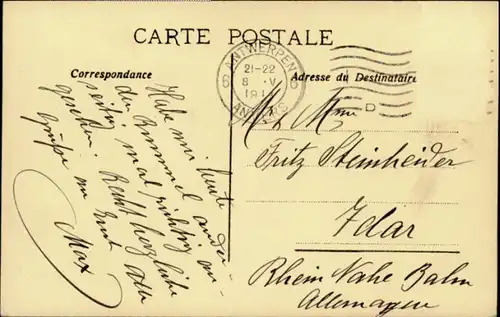 CARTE POSTALE
Correspondance
Adresse du Destinataire
ANTWERPEN 6
21-22
8 V
191
ANVERS
D
Habe mir heute
den Rummel
mal richtig
Recht herzliche
Grüße
Max
Mr & Mme
Fritz Steinheider
Idar
Rhein Nahe Bahn
Allemagne